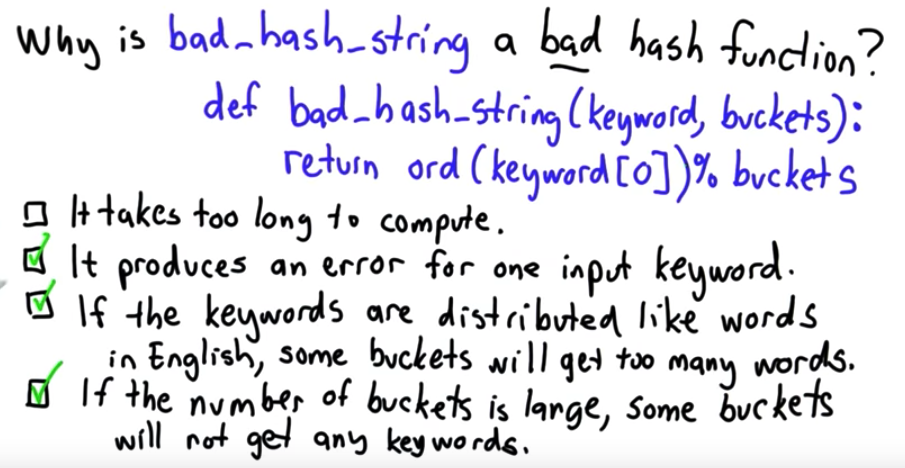 Why is bad_hash_string a bad hash function?
def bad_hash_string(keyword, buckets):
return ord(keyword[0])% buckets
It takes too long to compute.
It produces an error for one input keyword.
If the keywords are distributed like words
in English, some buckets will get too many words.
If the number of buckets is large, some buckets
will not get any keywords.